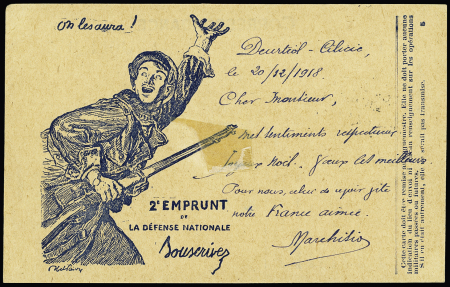 On les aura !
2e EMPRUNT
DE
LA DÉFENSE NATIONALE
Souscrivez
le 20/12/1918.
Cher Monsieur,
mes sentiments respectueux
Noël. Vœux les meilleurs
Pour nous, celui de
notre France aimée.
Cette carte doit être remise au vaguemestre. Elle ne doit porter aucune
indication du lieu d'envoi ni aucun renseignement sur les opérations
militaires passées ou futures.
S'il en était autrement, elle ne serait pas transmise.